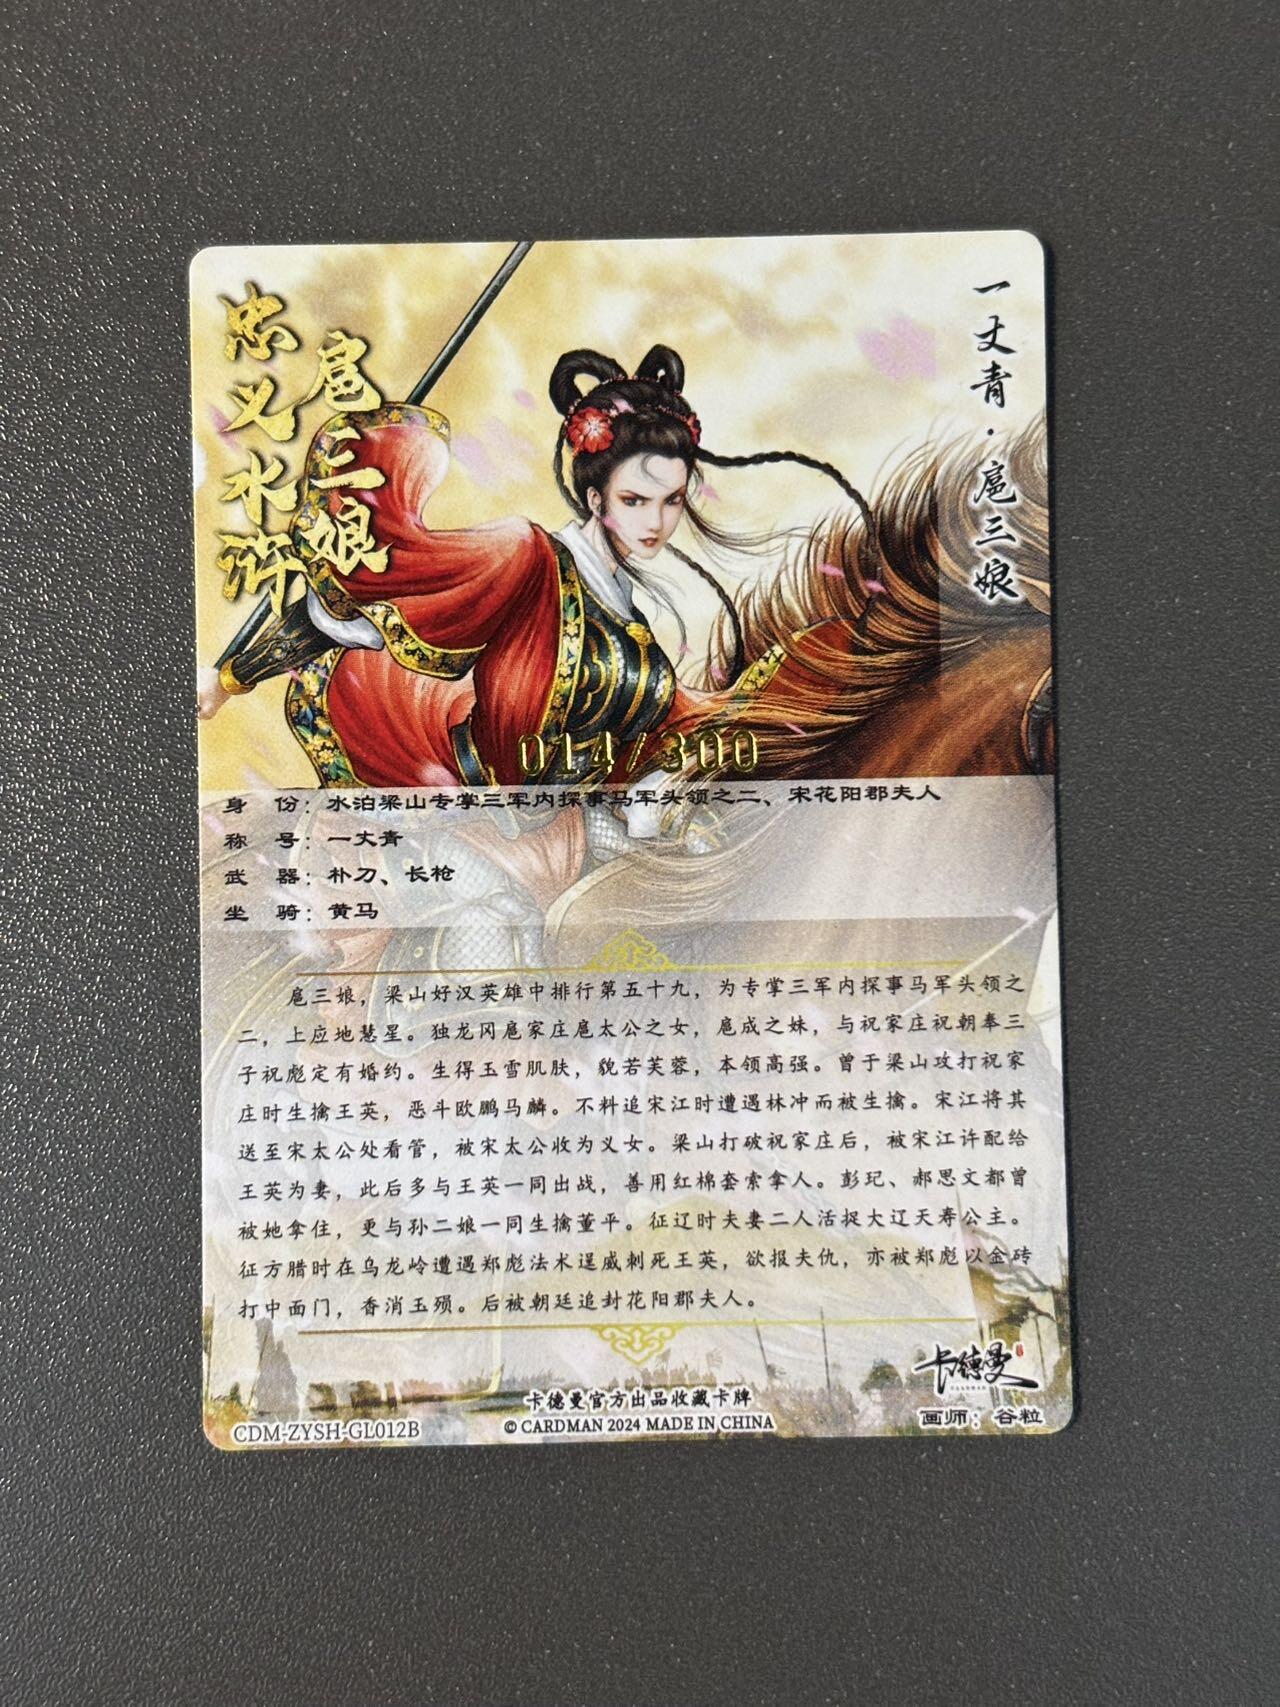 忠义水浒
扈三娘
一丈青·扈三娘
014/300
身 份：水泊梁山专掌三军内探事马军头领之二、宋花阳郡夫人
称 号：一丈青
武 器：朴刀、长枪
坐 骑：黄马
扈三娘，梁山好汉英雄中排行第五十九，为专掌三军内探事马军头领之
二，上应地慧星。独龙冈扈家庄扈太公之女，扈成之妹，与祝家庄祝朝奉三
子祝彪定有婚约。生得玉雪肌肤，貌若芙蓉，本领高强。曾于梁山攻打祝家
庄时生擒王英，恶斗欧鹏马麟。不料追宋江时遭遇林冲而被生擒。宋江将其
送至宋太公处看管，被宋太公收为义女。梁山打破祝家庄后，被宋江许配给
王英为妻，此后多与王英一同出战，善用红棉套索拿人。彭玘、郝思文都曾
被她拿住，更与孙二娘一同生擒董平。征辽时夫妻二人活捉大辽天寿公主。
征方腊时在乌龙岭遭遇郑彪法术逞威刺死王英，欲报夫仇，亦被郑彪以金砖
打中面门，香消玉殒。后被朝廷追封花阳郡夫人。
卡德曼
卡德曼官方出品收藏卡牌
CDM-ZYSH-GL012B
© CARDMAN 2024 MADE IN CHINA
画师：谷粒